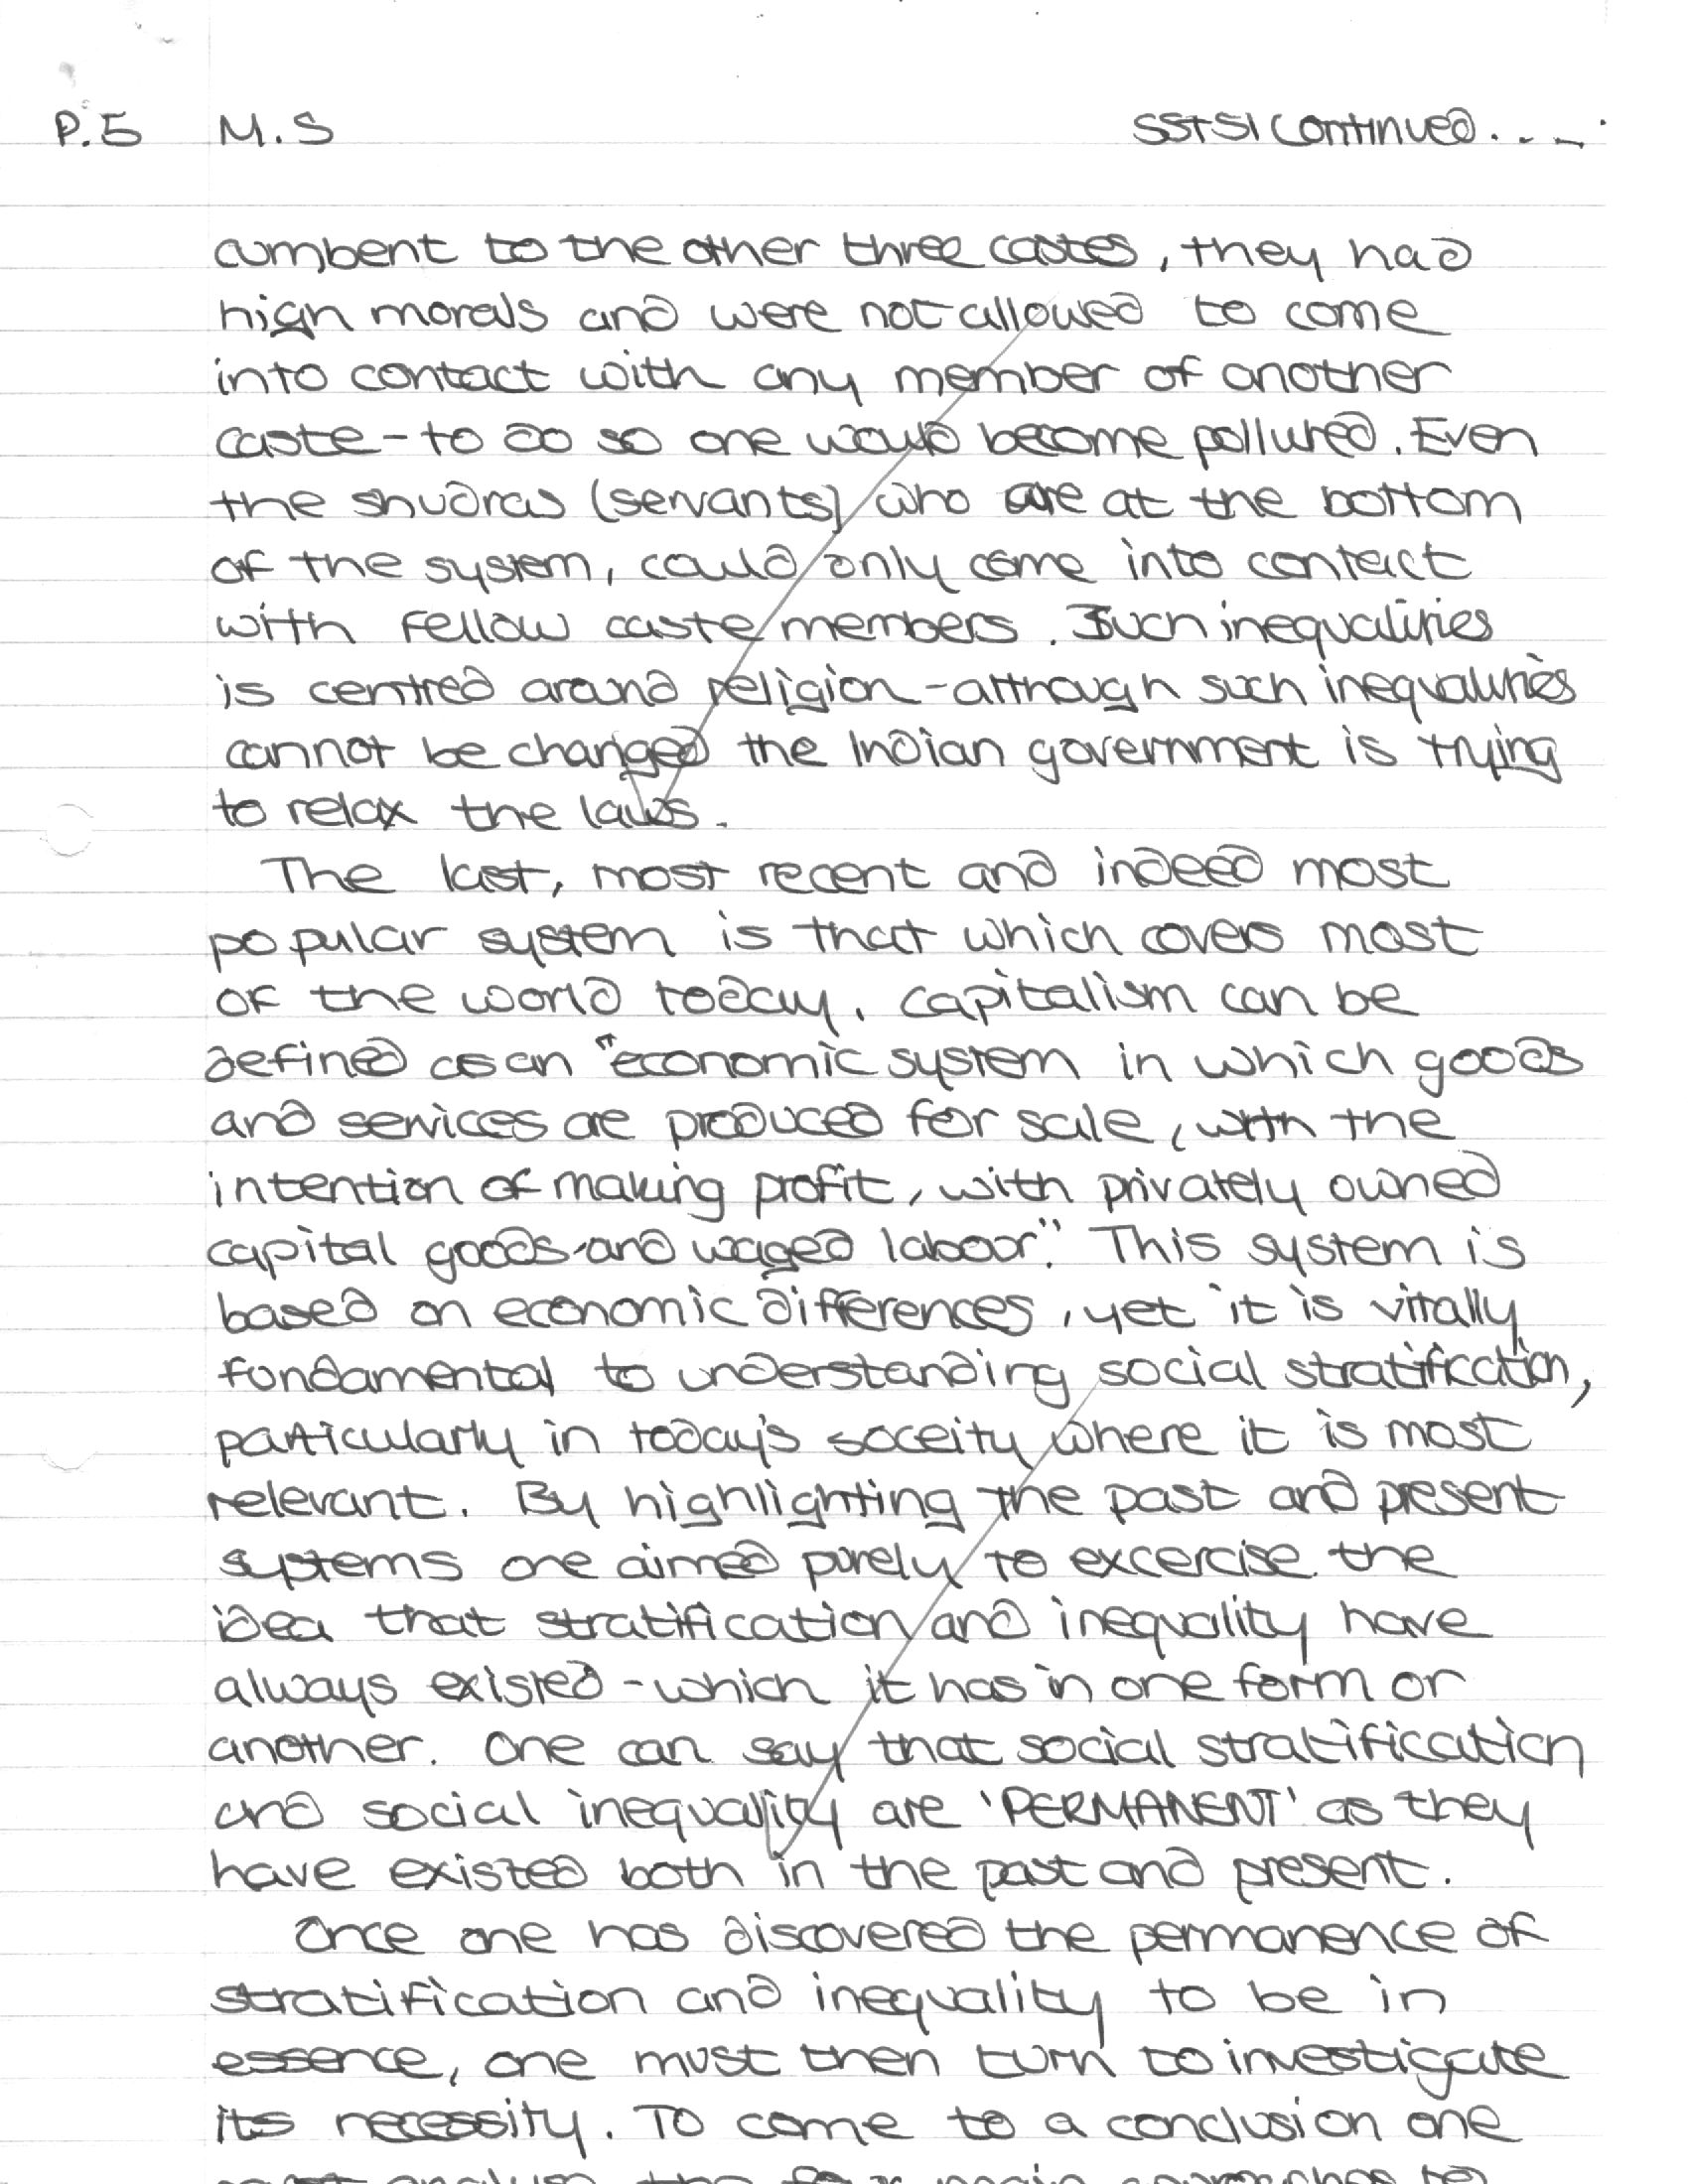 P.5 M.S SSTSI Continued....
cumbent to the other three castes, they had
high morals and were not allowed to come
into contact with any member of another
caste - to do so one would become polluted. Even
the shudras (servants) who are at the bottom
of the system, could only come into contact
with fellow caste members. Such inequalities
is centred around religion - although such inequalities
cannot be changed the Indian government is trying
to relax the laws.
The last, most recent and indeed most
popular system is that which covers most
of the world today. Capitalism can be
defined as an "economic system in which goods
and services are produced for sale, with the
intention of making profit, with privately owned
capital goods and waged labour." This system is
based on economic differences, yet it is vitally
fundamental to understanding social stratification,
particularly in today's soceity where it is most
relevant. By highlighting the past and present
systems one aimed purely to excercise the
idea that stratification and inequality have
always existed - which it has in one form or
another. One can say that social stratification
and social inequality are 'PERMANENT' as they
have existed both in the past and present.
Once one has discovered the permanence of
stratification and inequality to be in
essence, one must then turn to investigate
its necessity. To come to a conclusion one